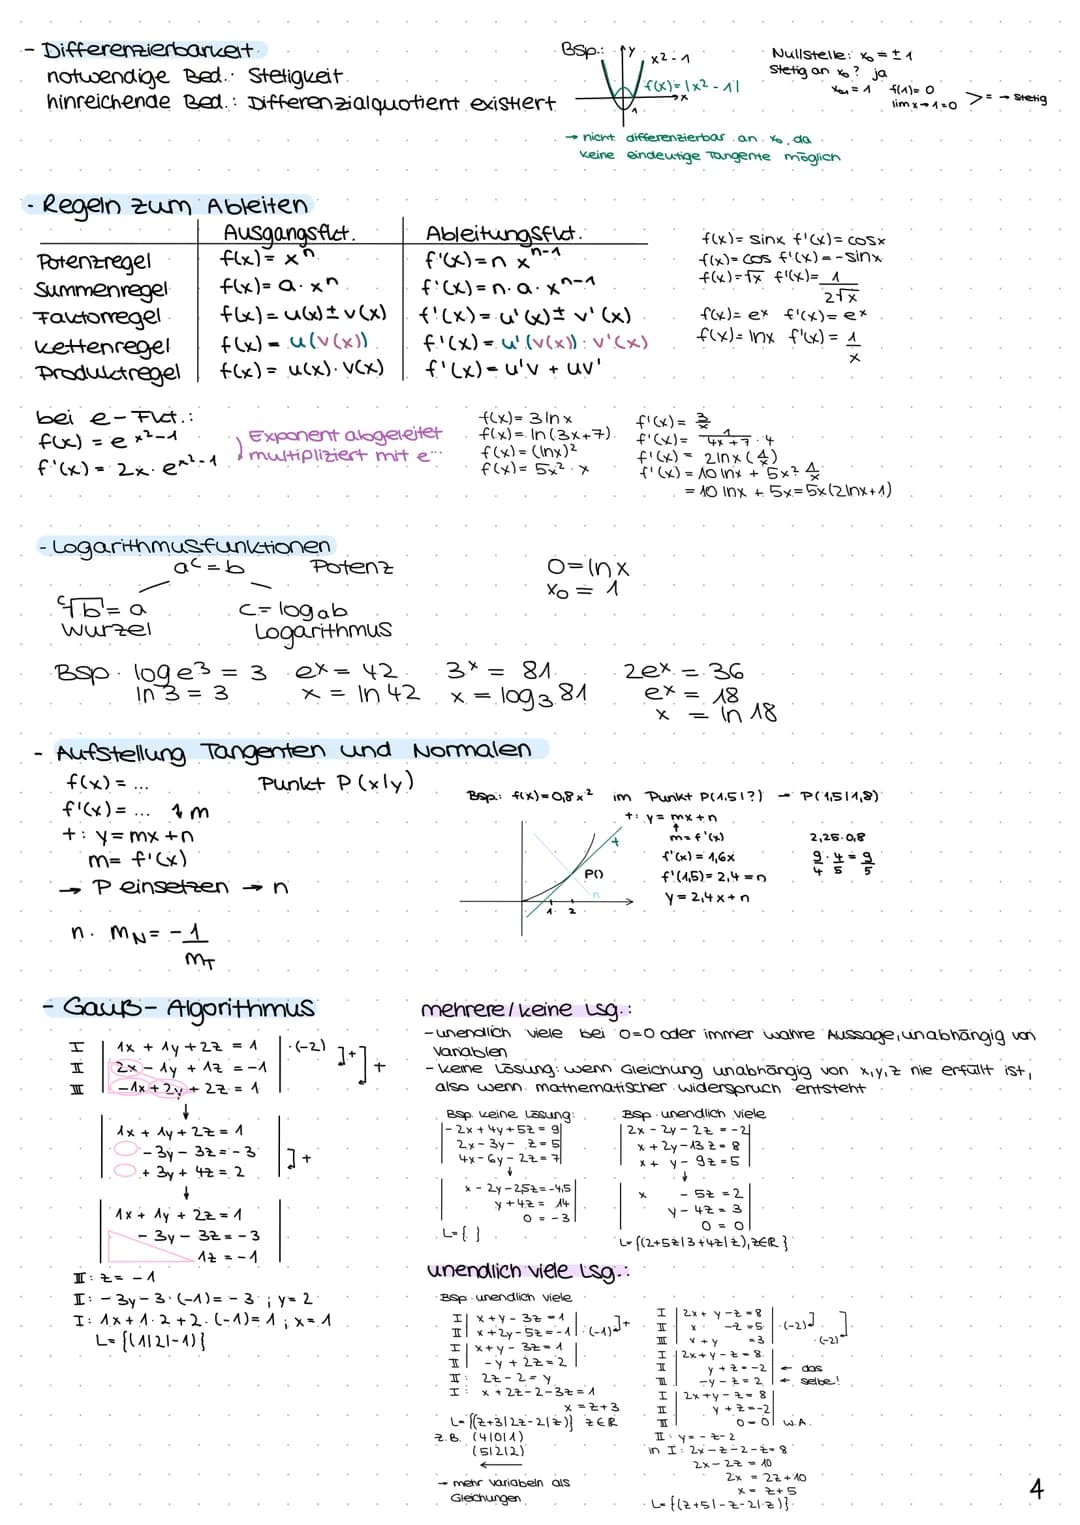 - Differenzierbarkeit
notwendige Bed.: Stetigkeit
hinreichende Bed.: Differenzialquotient existiert
Bsp.: y x² - 1
f(x)= |x² - 1|
x
1
Nullstelle: x₀ = ± 1
Stetig an x₀? ja
x₀₁ = 1 f(1)= 0
lim x→1=0 >= → stetig
→ nicht differenzierbar an x₀, da
keine eindeutige Tangente möglich
- Regeln zum Ableiten
Ausgangsfkt. Ableitungsfkt.
Potenzregel f(x)= xⁿ f'(x)= n xⁿ⁻¹
Summenregel f(x)= a · xⁿ f'(x)= n · a · xⁿ⁻¹
Faktorregel f(x)= u(x) ± v(x) f'(x)= u'(x) ± v'(x)
Kettenregel f(x)= u(v(x)) f'(x)= u'(v(x)) · v'(x)
Produktregel f(x)= u(x) · v(x) f'(x)= u'v + uv'
f(x)= sinx f'(x)= cosx
f(x)= cos f'(x)= -sinx
f(x)=√x f'(x)= 1/2√x
f(x)= eˣ f'(x)= eˣ
f(x)= lnx f'(x)= 1/x
bei e-Fkt.:
f(x) = e^x²-1
f'(x) = 2x · e^x²-1
Exponent abgeleitet
multipliziert mit e···
f(x)= 3 ln x f'(x)= 3/x
f(x)= ln(3x+7) f'(x)= 1/4x+7 · 4
f(x)= (lnx)² f'(x)= 2lnx (1/x)
f(x)= 5x² · x f'(x)= 10 lnx + 5x² 1/x
= 10 lnx + 5x = 5x(2lnx+1)
- Logarithmusfunktionen
aᶜ = b Potenz
ᶜ√b = a c = logab
Wurzel Logarithmus
0 = ln x
x₀ = 1
Bsp. log e³ = 3 eˣ = 42 3ˣ = 81 2eˣ = 36
ln 3 = 3 x = ln 42 x = log₃ 81 eˣ = 18
x = ln 18
- Aufstellung Tangenten und Normalen
f(x) = ... Punkt P(x|y)
f'(x) = ... m
t: y = mx + n
m = f'(x)
→ P einsetzen → n
n. mN = - 1/mT
Bsp.: f(x)= 0,8x² im Punkt P(1,5|?) → P(1,5|1,8)
t: y = mx + n
m = f'(x)
f'(x) = 1,6x
f'(1,5) = 2,4 = n
y = 2,4x + n
2,25 · 0,8
9/4 · 4/5 = 9/5
t
P()
n
1 2
- Gauß-Algorithmus
I 1x + 1y + 2z = 1 | · (-2) ]+ ]+
II 2x - 1y + 1z = -1
III -1x + 2y + 2z = 1
↓
1x + 1y + 2z = 1
- 3y - 3z = -3 ]+
+ 3y + 4z = 2
↓
1x + 1y + 2z = 1
- 3y - 3z = -3
1z = -1
III: z = -1
II: -3y - 3 · (-1) = -3 ; y = 2
I: 1x + 1 · 2 + 2 · (-1) = 1 ; x = 1
L = {(1|2|-1)}
mehrere/keine Lsg.:
- unendlich viele bei 0=0 oder immer wahre Aussage, unabhängig von
Variablen
- keine Lösung: wenn Gleichung unabhängig von x,y,z nie erfüllt ist,
also wenn mathematischer Widerspruch entsteht
Bsp. keine Lösung:
- 2x + 4y + 5z = 9
2x - 3y - z = 5
4x - 6y - 2z = 7
↓
x - 2y - 2,5z = -4,5
y + 4z = 14
0 = -3
L = { }
Bsp. unendlich viele
2x - 2y - 2z = -2
x + 2y - 13z = 8
x + y - 9z = 5
↓
x - 5z = 2
y - 4z = 3
0 = 0
L = {(2+5z|3+4z|z), z∈R}
unendlich viele Lsg.:
Bsp. unendlich viele
I x + y - 3z = 1 ]+
II x + 2y - 5z = -1 | · (-1)
I x + y - 3z = 1
II -y + 2z = 2
II: 2z - 2 = y
I: x + 2z - 2 - 3z = 1
x = z + 3
L = {(z+3|2z-2|z)} z∈R
z.B. (4|0|1)
(5|2|2)
←
→ mehr Variabeln als
Gleichungen
I 2x + y - z = 8
II x - z = 5 | · (-2) ]
III x + y = 3 · (-2) ]
I 2x + y - z = 8
II y + z = -2 ← das
III -y - z = 2 ← selbe!
I 2x + y - z = 8
II y + z = -2
III 0 = 0 W.A.
II: y = - z - 2
in I: 2x - z - 2 - z = 8
2x - 2z = 10
2x = 2z + 10
x = z + 5
L = {(z+5|-z-2|z)}
4